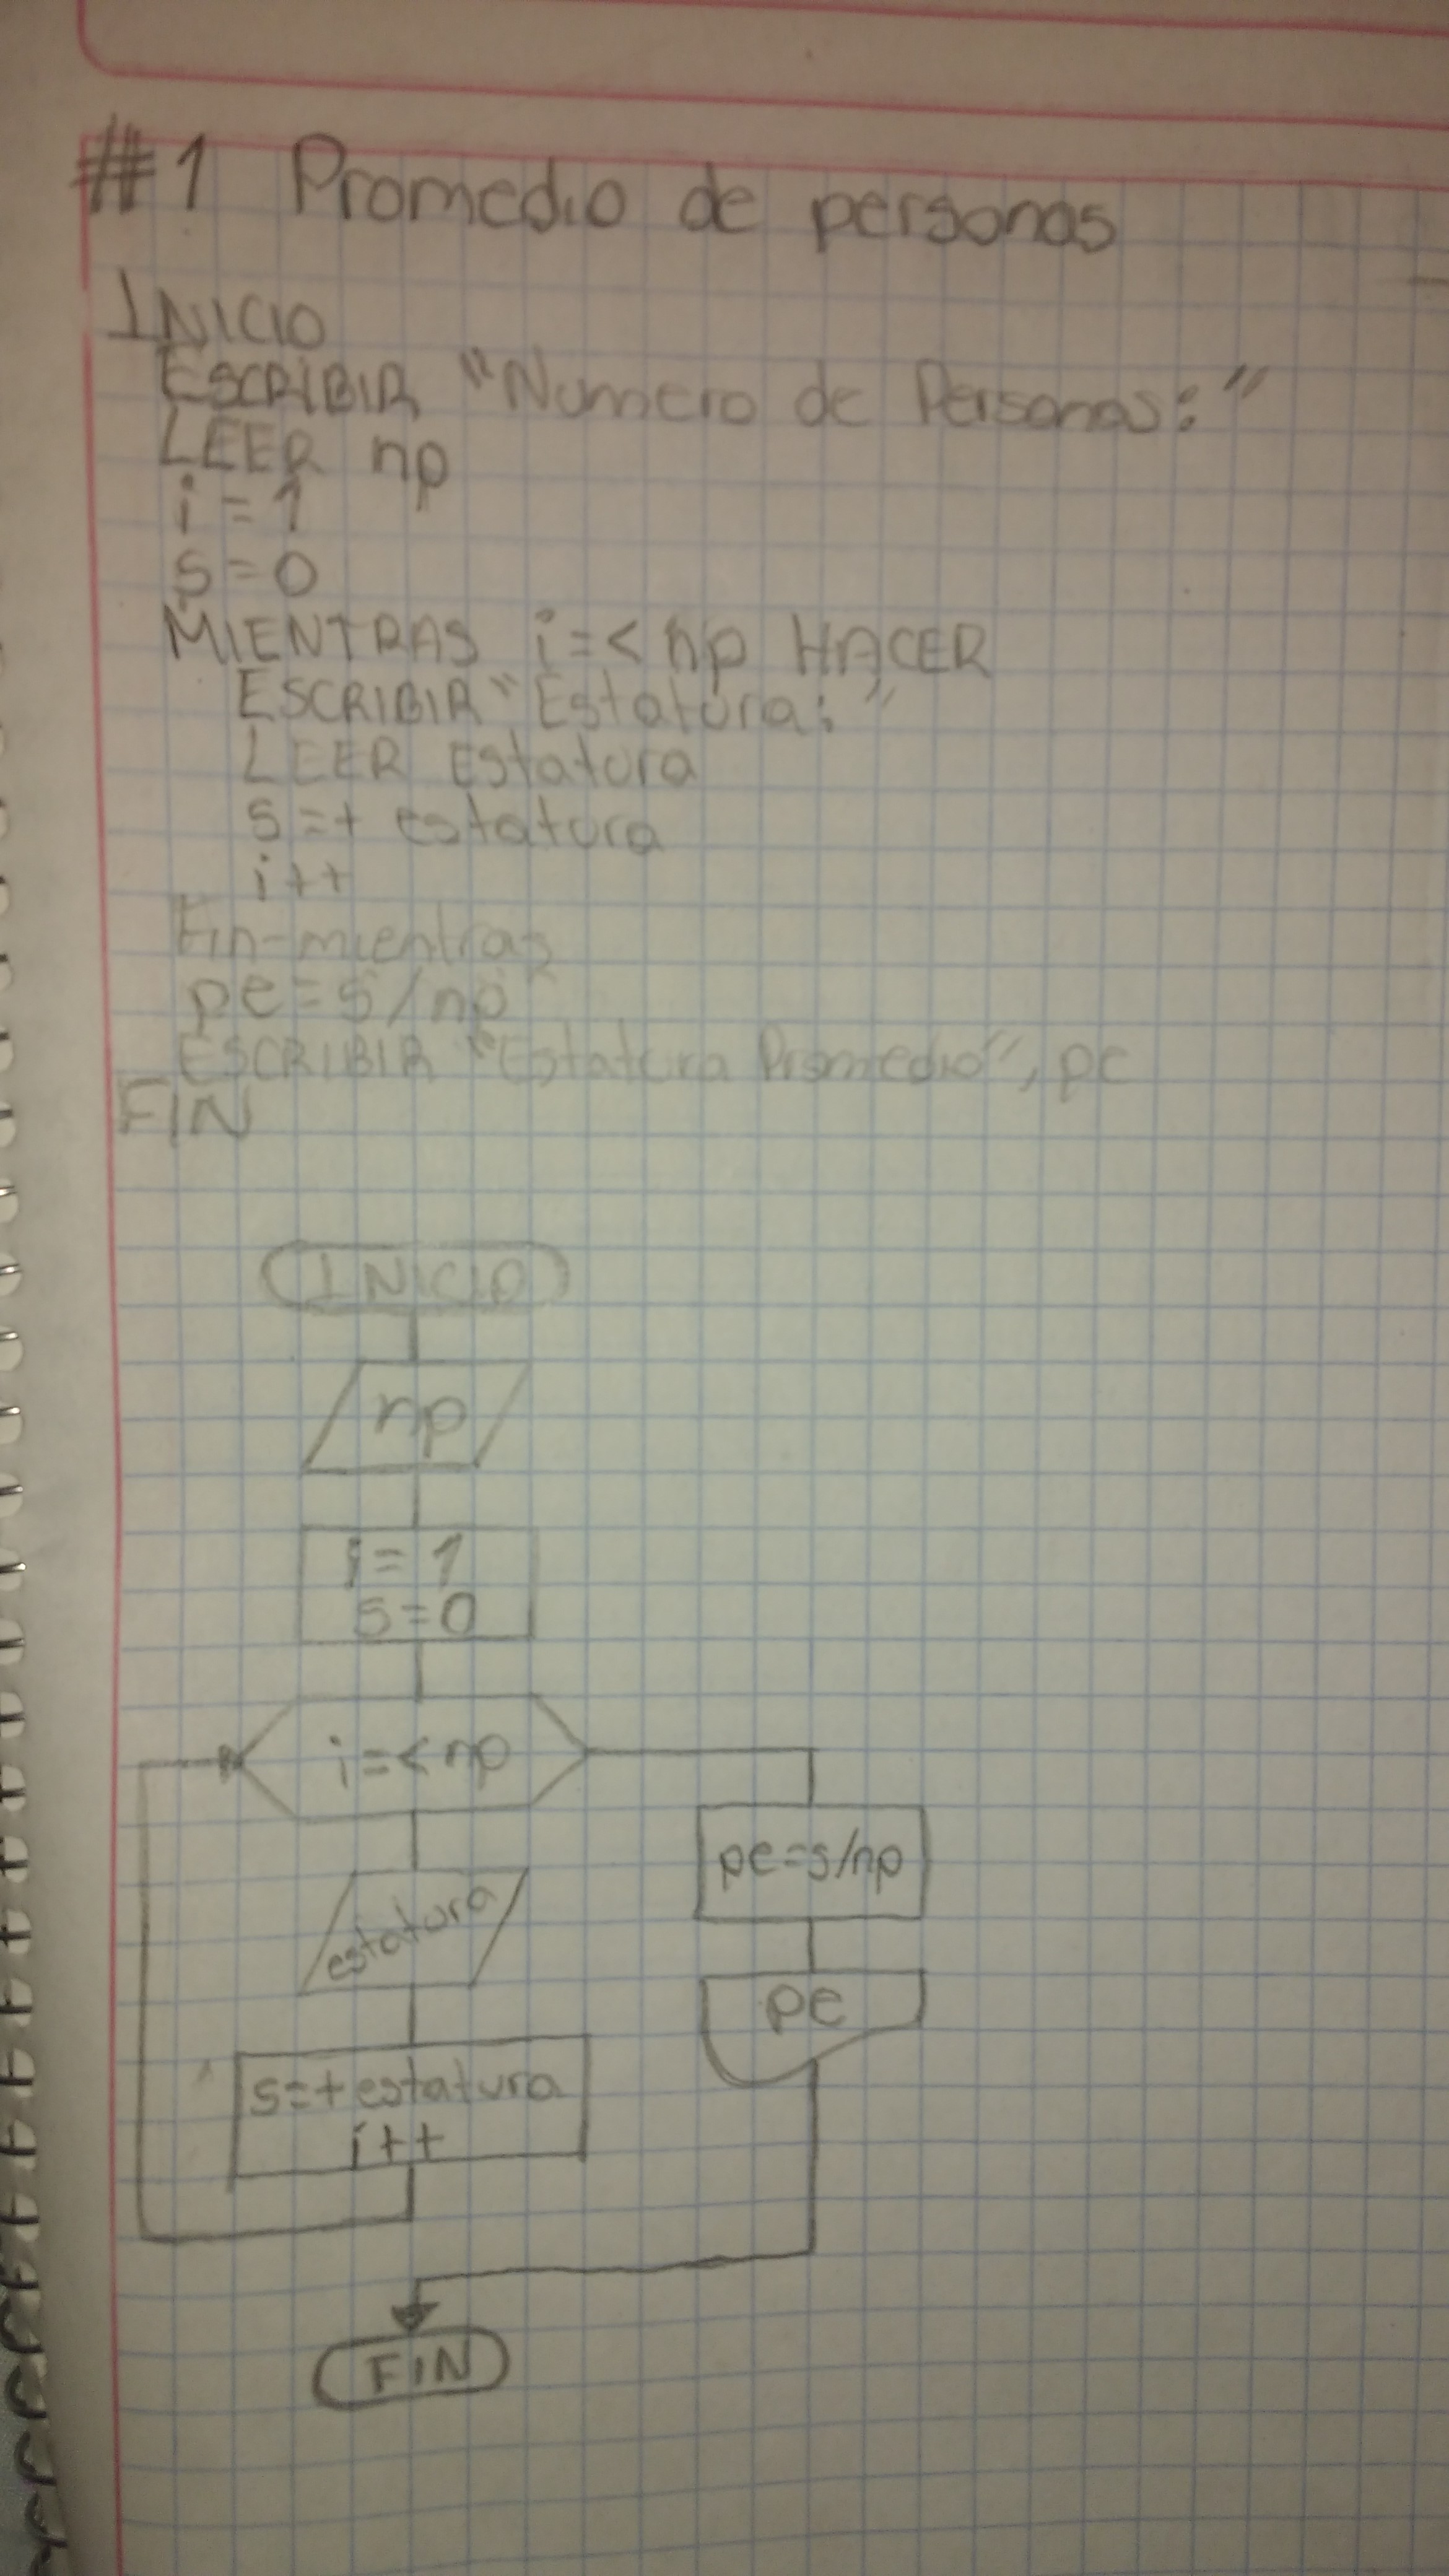 #1 Promedio de personas
INICIO
ESCRIBIR "Numero de Personas:"
LEER np
i=1
s=0
MIENTRAS i=< np HACER
ESCRIBIR "Estatura:"
LEER Estatura
s=+ estatura
i++
Fin-mientras
pe=s/np
ESCRIBIR "Estatura Promedio", pe
FIN
INICIO
np
i=1
s=0
i=< np
estatura
s=+estatura
i++
pe=s/np
pe
FIN